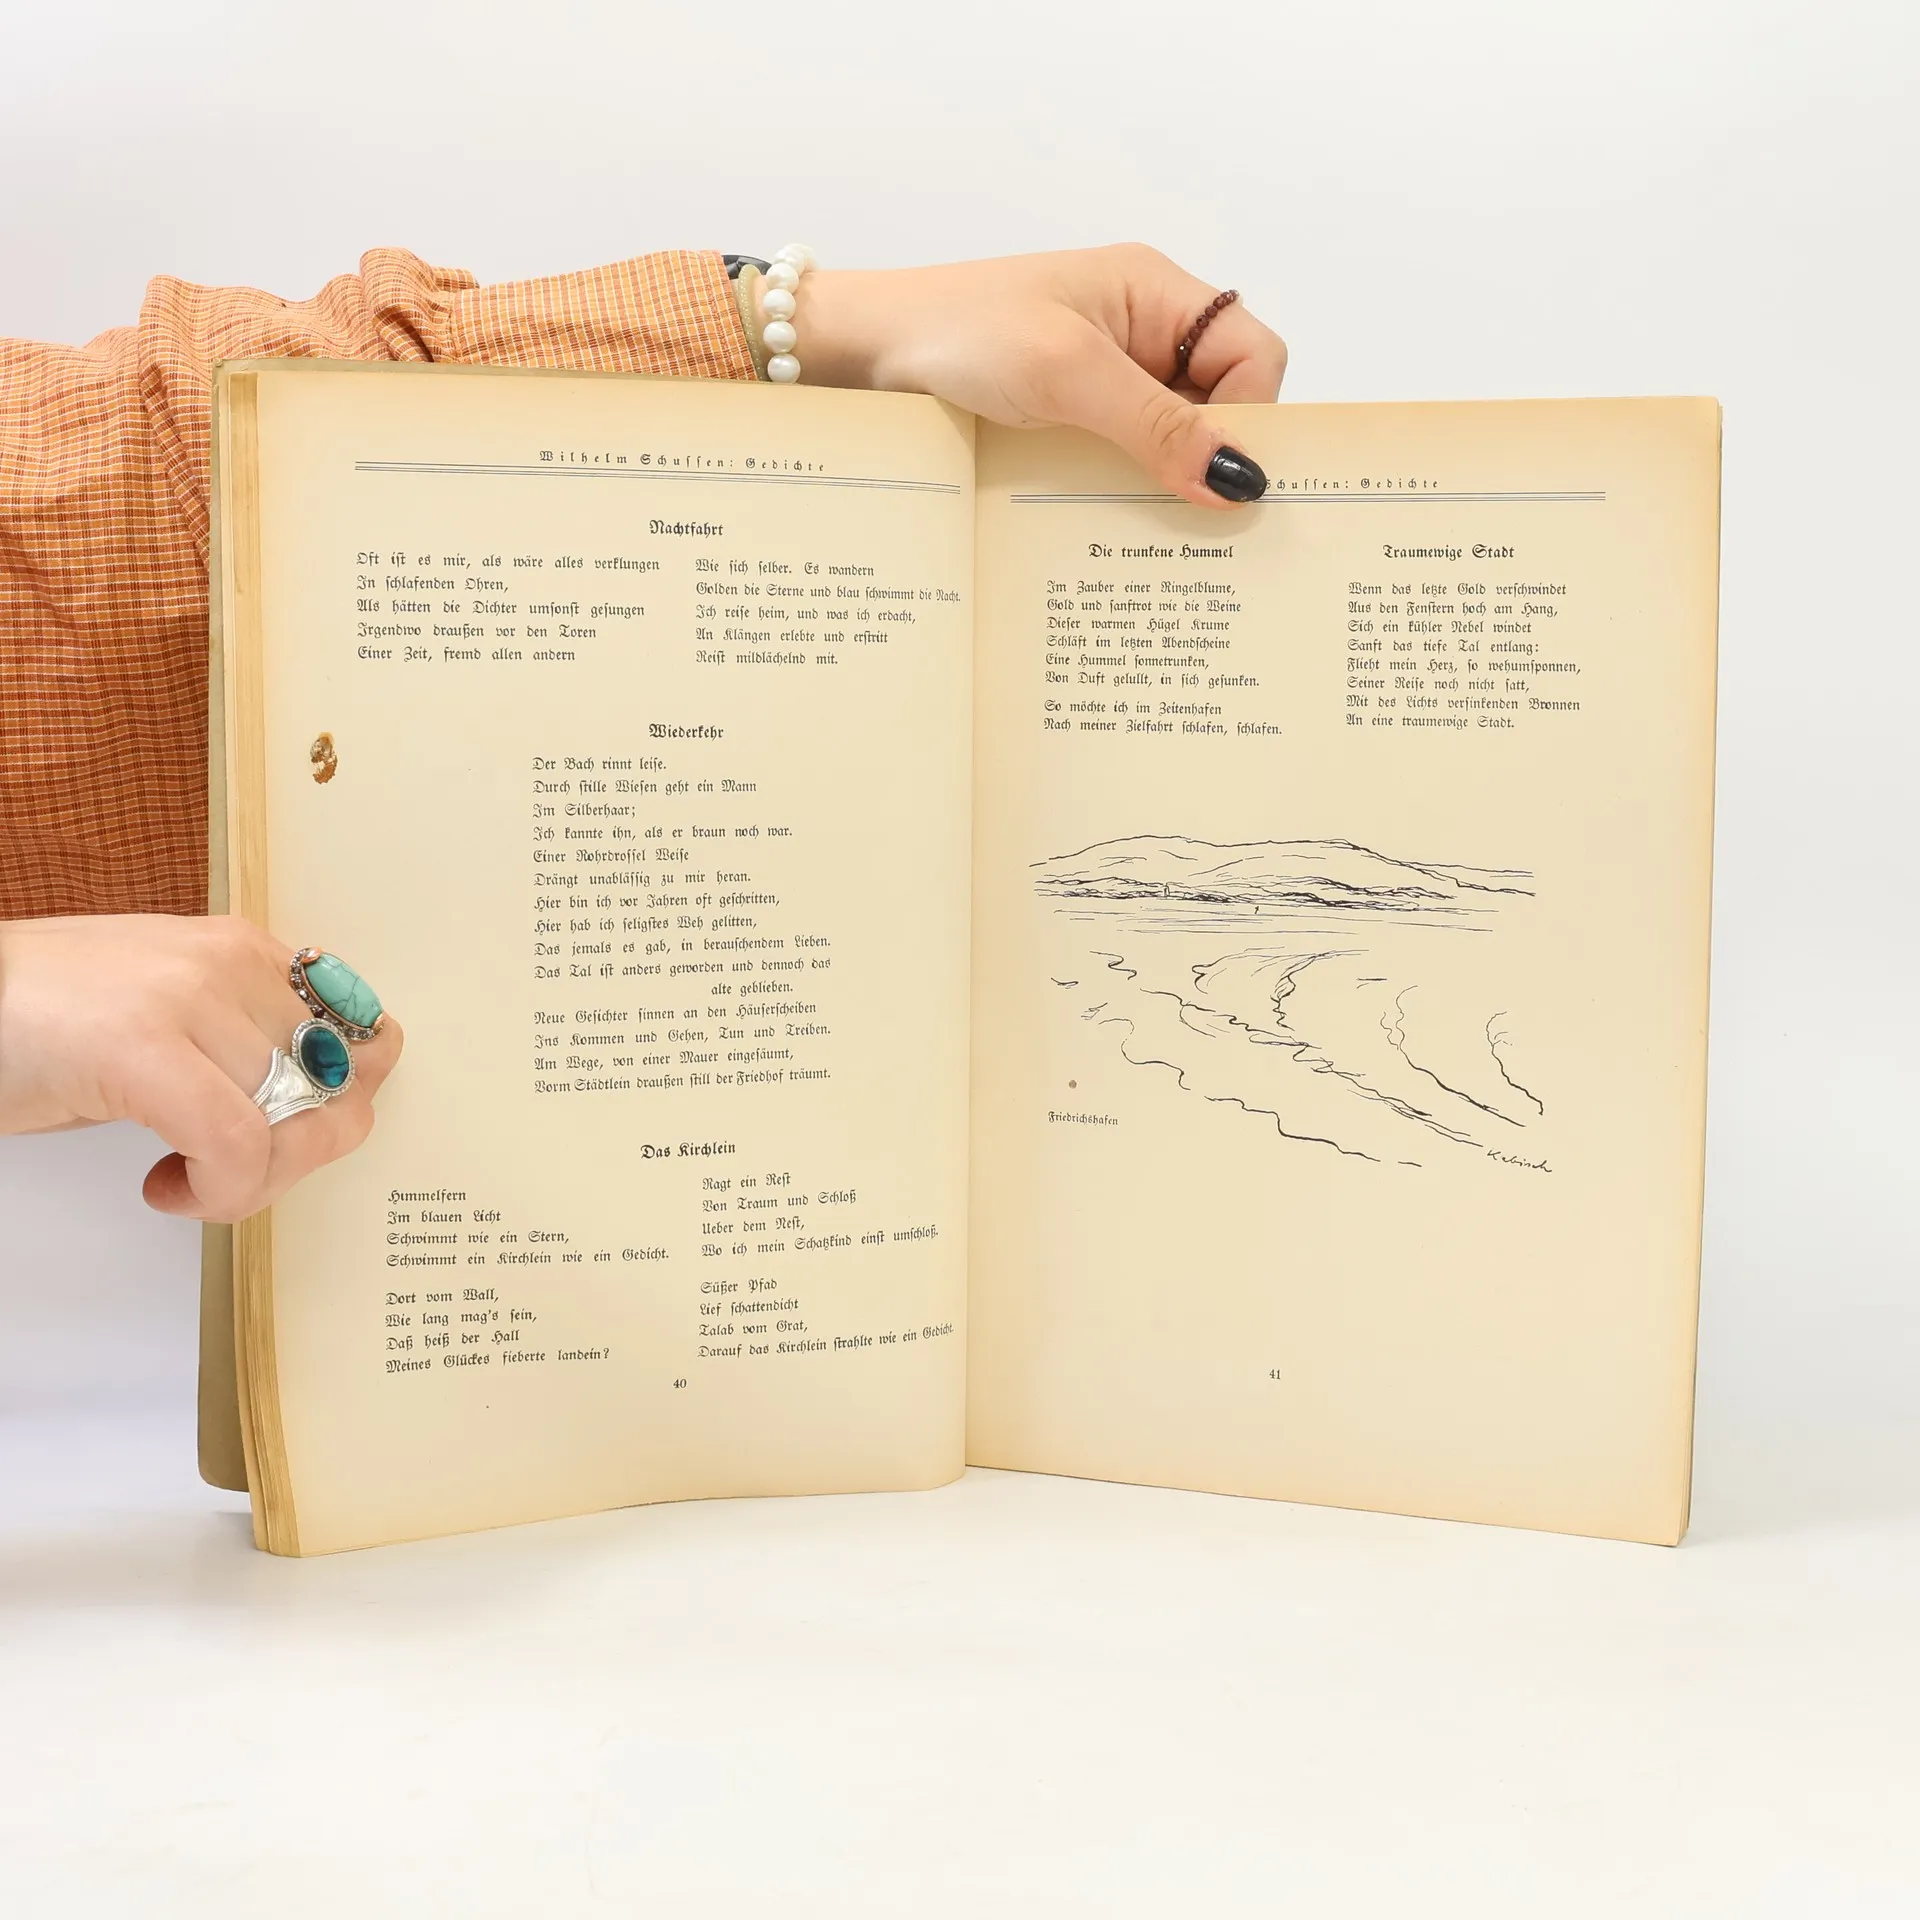 Wilhelm Schussen: Gedichte
Nachtfahrt
Oft ist es mir, als wäre alles verklungen
In schlafenden Ohren,
Als hätten die Dichter umsonst gesungen
Irgendwo draußen vor den Toren
Einer Zeit, fremd allen andern
Wie sich selber. Es wandern
Golden die Sterne und blau schwimmt die Nacht.
Ich reise heim, und was ich erdacht,
An Klängen erlebte und erstritt
Reist mildlächelnd mit.
Wiederkehr
Der Bach rinnt leise.
Durch stille Wiesen geht ein Mann
Im Silberhaar;
Ich kannte ihn, als er braun noch war.
Einer Rohrdrossel Weise
Drängt unablässig zu mir heran.
Hier bin ich vor Jahren oft geschritten,
Hier hab ich seligstes Weh gelitten,
Das jemals es gab, in berauschendem Lieben.
Das Tal ist anders geworden und dennoch das
alte geblieben.
Neue Gesichter sinnen an den Häuserscheiben
Ins Kommen und Gehen, Tun und Treiben.
Am Wege, von einer Mauer eingesäumt,
Vorm Städtlein draußen still der Friedhof träumt.
Das Kirchlein
Himmelfern
Im blauen Licht
Schwimmt wie ein Stern,
Schwimmt ein Kirchlein wie ein Gedicht.
Dort vom Wall,
Wie lang mag's sein,
Daß heiß der Hall
Meines Glückes fieberte landein?
Ragt ein Rest
Von Traum und Schloß
Ueber dem Nest,
Wo ich mein Schatzkind einst umschloß.
Süßer Pfad
Lief schattendicht
Talab vom Grat,
Darauf das Kirchlein strahlte wie ein Gedicht.
40
Schussen: Gedichte
Die trunkene Hummel
Im Zauber einer Ringelblume,
Gold und sanftrot wie die Weine
Dieser warmen Hügel Krume
Schläft im letzten Abendscheine
Eine Hummel sonnetrunken,
Von Duft gelullt, in sich gesunken.
So möchte ich im Zeitenhafen
Nach meiner Zielfahrt schlafen, schlafen.
Traumewige Stadt
Wenn das letzte Gold verschwindet
Aus den Fenstern hoch am Hang,
Sich ein kühler Nebel windet
Sanft das tiefe Tal entlang:
Flieht mein Herz, so wehumsponnen,
Seiner Reise noch nicht satt,
Mit des Lichts versinkenden Bronnen
An eine traumewige Stadt.
Friedrichshafen
Kabisch
41